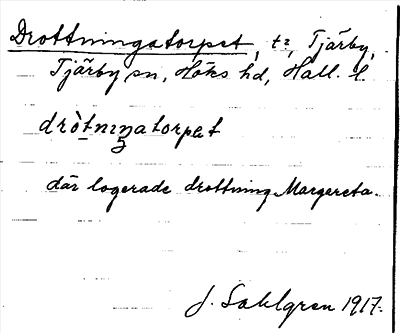 Drottningatorpet, t?, Tjärby,
Tjärby sn, Höks hd, Hall. l.
dròtniŋatorpet
där logerade drottning Margareta.
J. Sahlgren 1917.